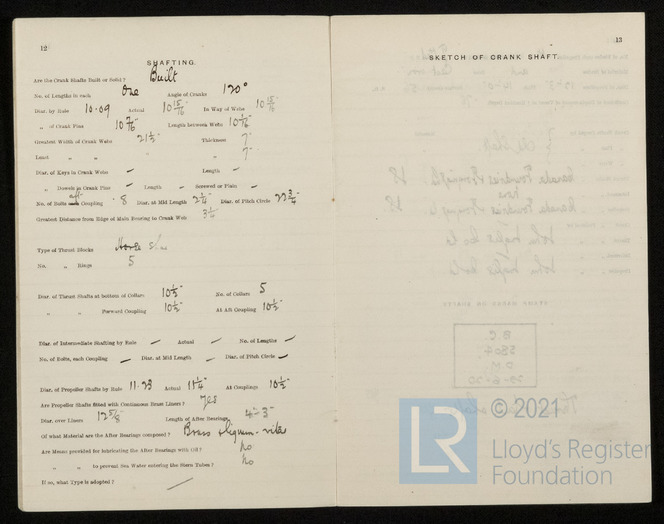 12
SHAFTING.
Are the Crank Shafts Built or Solid? Built
No. of Lengths in each One Angle of Cranks 120°
Diar. by Rule 10.09 Actual 10 15/16 In Way of Webs 10 15/16
„ of Crank Pins 10 7/8 Length between Webs
Greatest Width of Crank Webs 21½" Thickness 7"
Least „ „ „ 7"
Diar. of Keys in Crank Webs – Length –
„ Dowels in Crank Pins – Length – Screwed or Plain –
No. of Bolts aft Coupling 8 Diar. at Mid Length 2¼" Diar. of Pitch Circle
Greatest Distance from Edge of Main Bearing to Crank Web
Type of Thrust Blocks Horse Shoe
No. „ Rings 5
Diar. of Thrust Shafts at bottom of Collars 10½" No. of Collars 5
„ „ Forward Coupling 10½" At Aft Coupling 10½"
Diar. of Intermediate Shafting by Rule – Actual – No. of Lengths –
No. of Bolts, each Coupling – Diar. at Mid Length – Diar. of Pitch Circle –
Diar. of Propeller Shafts by Rule 11.23 Actual 11¼" At Couplings 10½"
Are Propeller Shafts fitted with Continuous Brass Liners? Yes
Diar. over Liners 12 5/8" Length of After Bearings 4'-3"
Of what Material are the After Bearings composed? Brass & lignum-vitae
Are Means provided for lubricating the After Bearings with Oil? No
„ „ to prevent Sea Water entering the Stern Tubes? No
If so, what Type is adopted? –
13
SKETCH OF CRANK SHAFT.
LR
© 2021
Lloyd's Register
Foundation